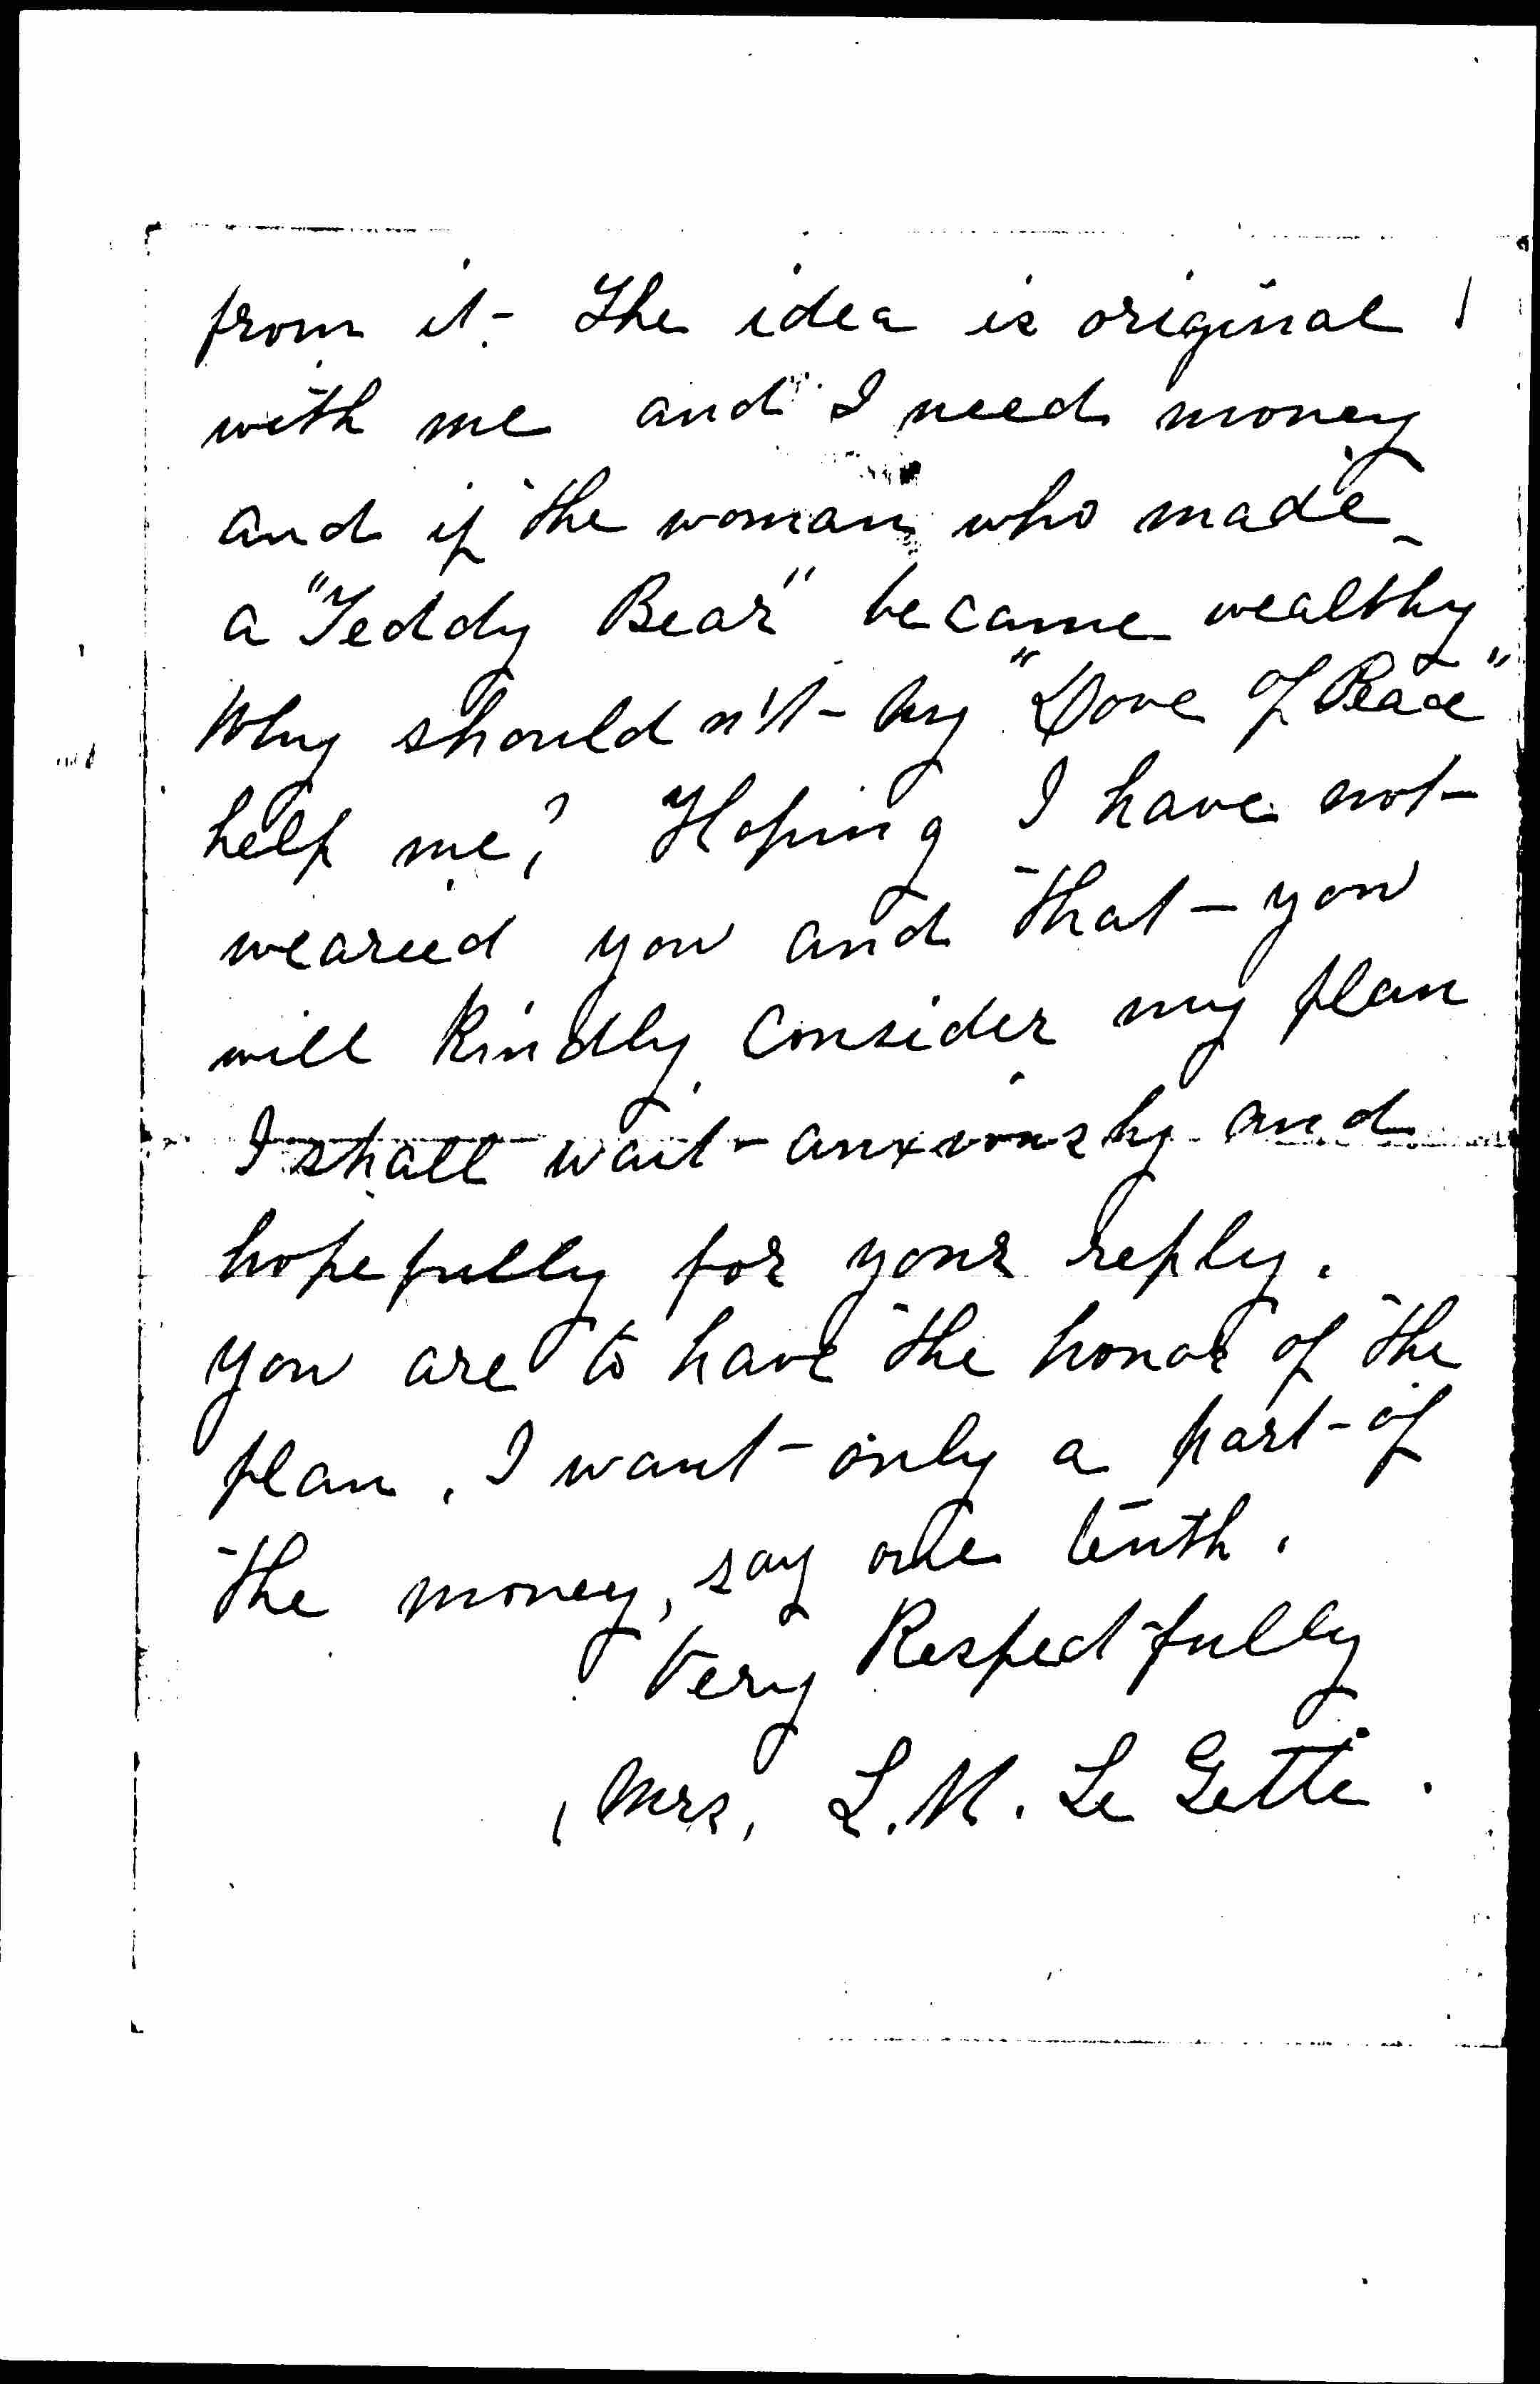 from it. The idea is original
with me and I need money
and if the woman who made
a "Teddy Bear" became wealthy
Why shouldn't my "Dove of Peace"
help me? Hoping I have not
wearied you and that you
will kindly consider my plan
I shall wait anxiously and
hopefully for your reply.
You are to have the honor of the
plan, I want only a part of
the money, say one tenth.
Very Respectfully
Mrs, L.M. Le Gette.